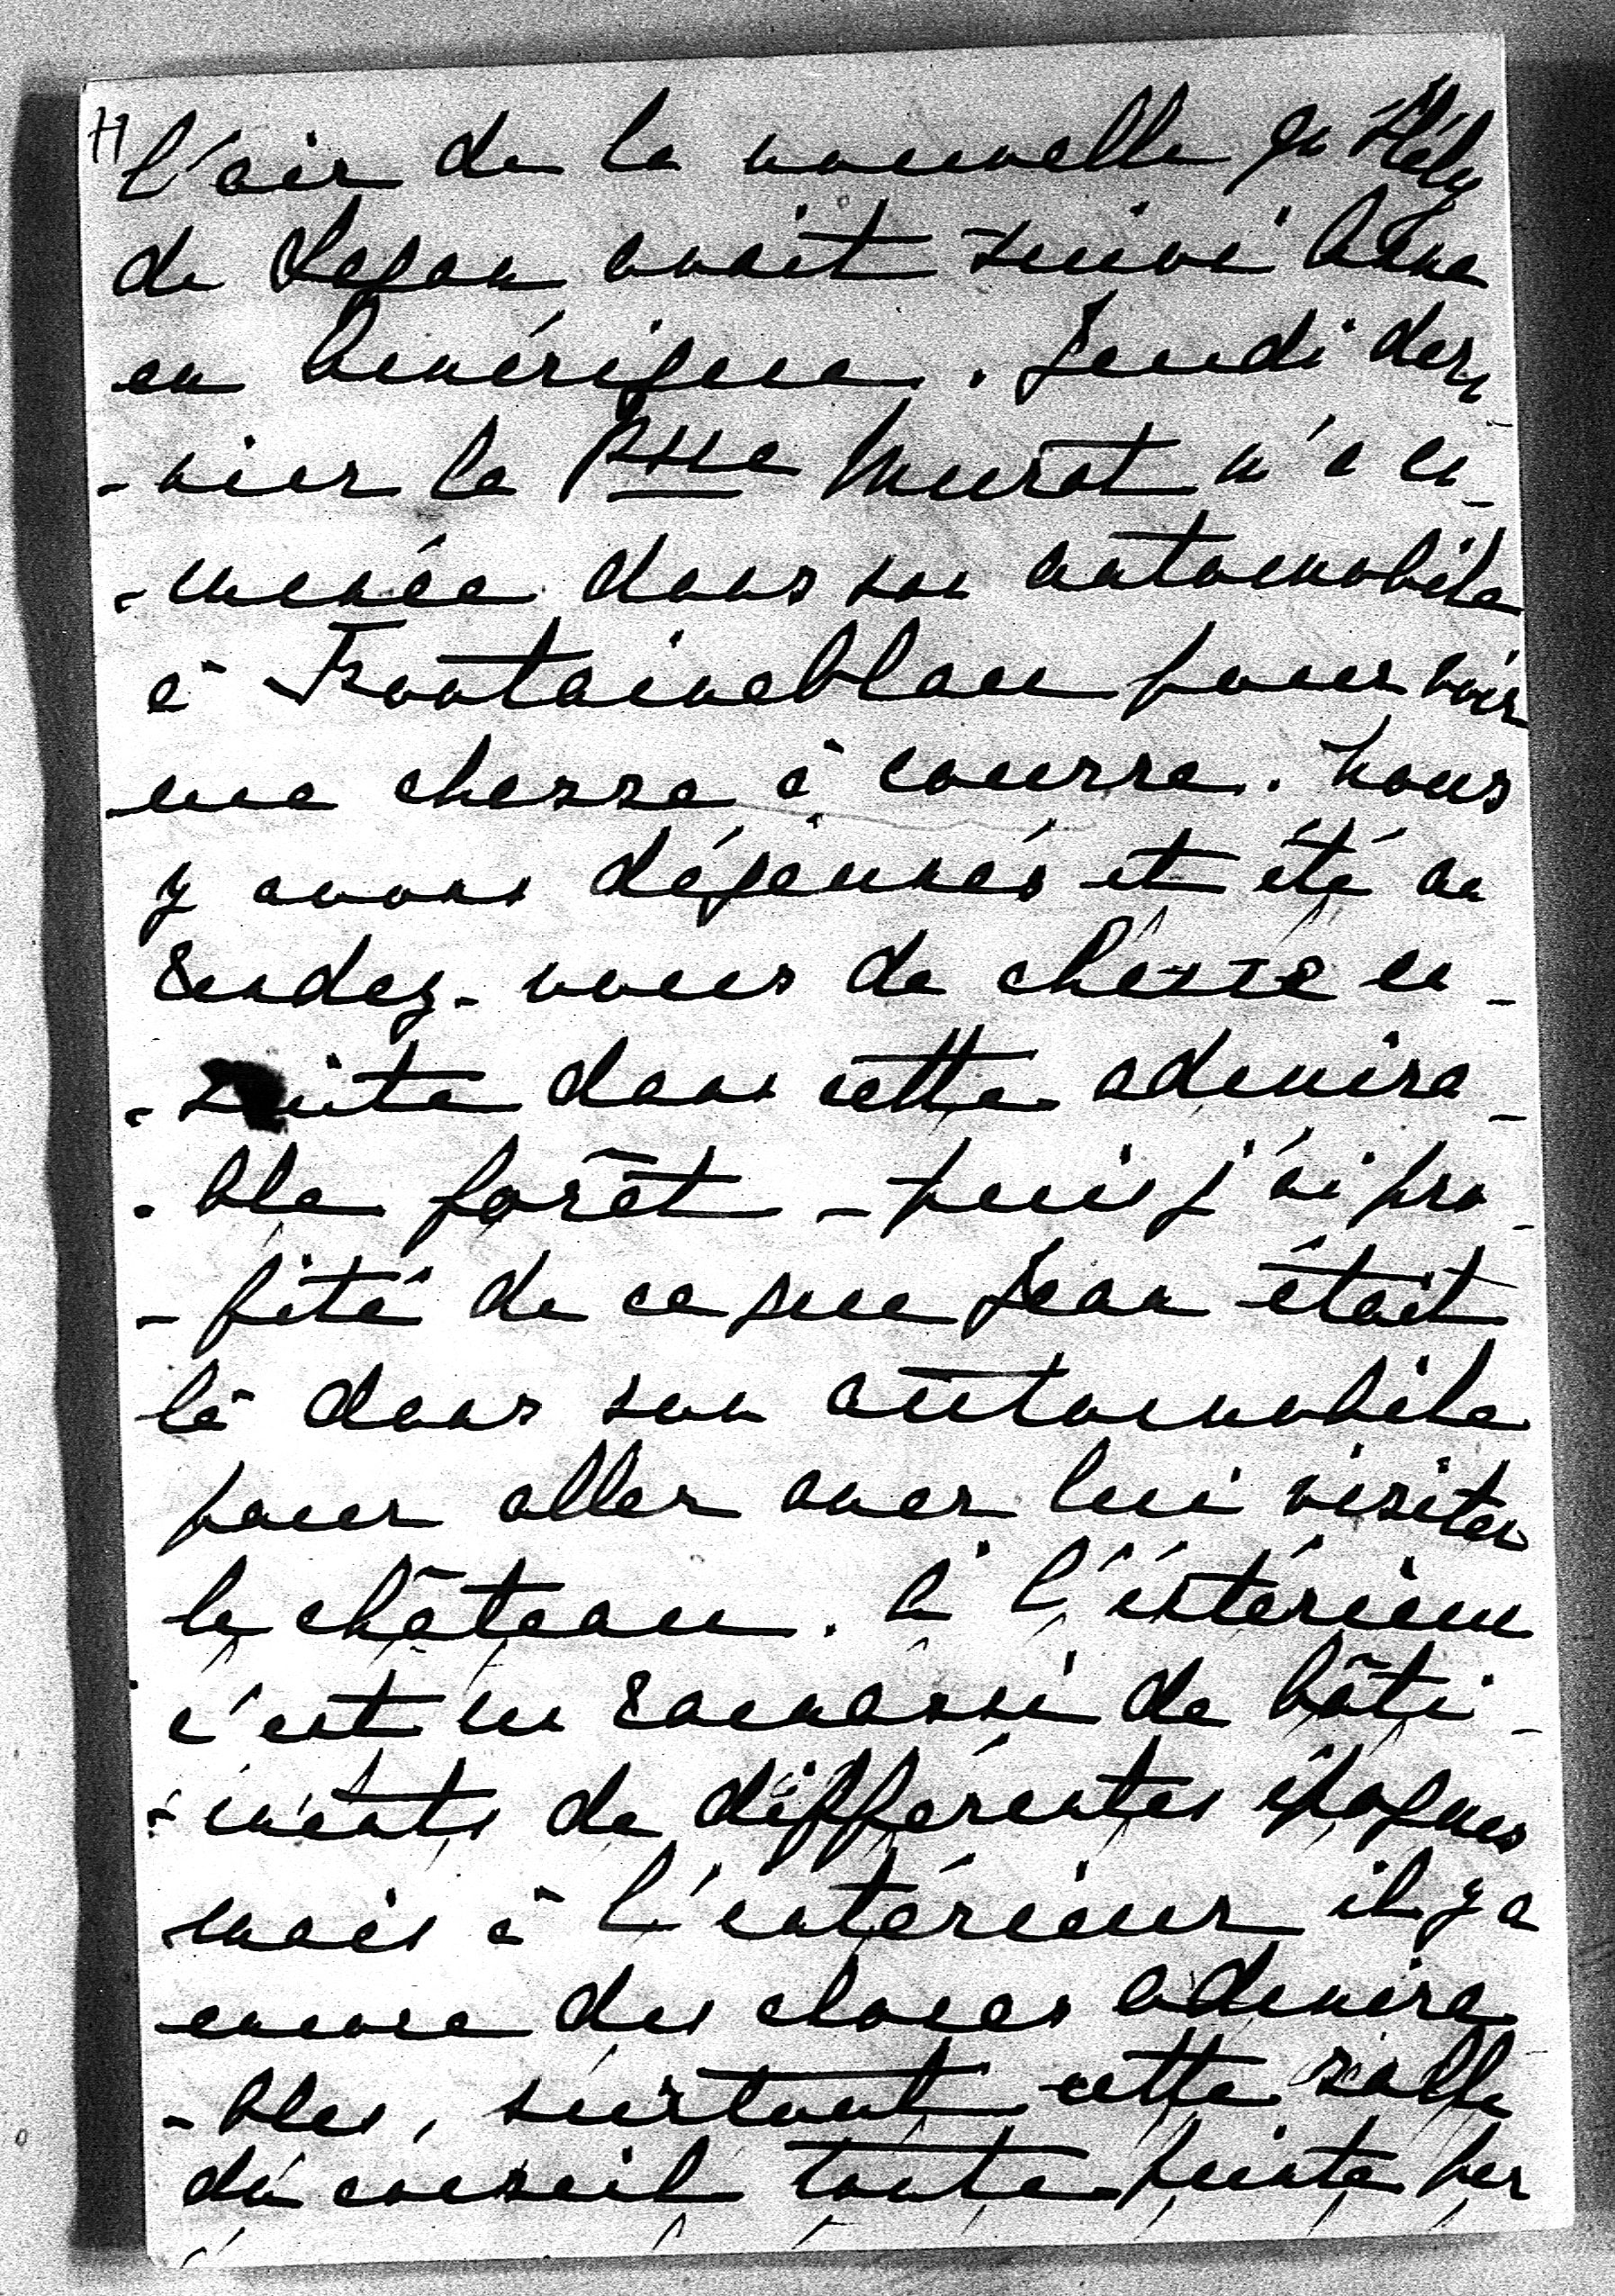 H l'air de la nouvelle qu'Hély
de Sagan avait suivi Anna
en Amérique. Jeudi der
-nier la Psse Murat m'a em-
-menée dans son automobile
à Fontainebleau pour voir
une chasse à courre. Nous
y avons déjeunés et été au
rendez-vous de chasse en-
-suite dans cette admira-
-ble forêt - puis j'ai pro-
-fité de ce que Jean était
là dans son automobile
pour aller avec lui visiter
le château. A l'extérieur
c'est un ramassi de bâti-
-ments de différentes époques
mais à l'intérieur il y a
encore des choses admira-
-bles, surtout cette salle
du conseil toute peinte par